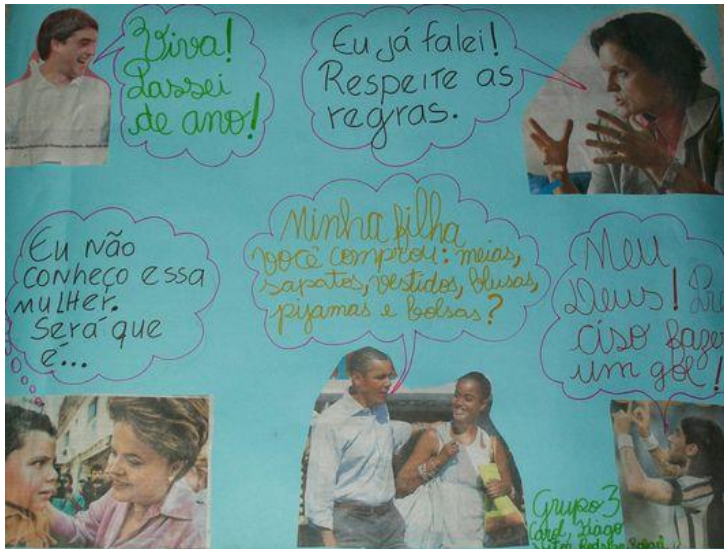 Viva!
Passei
de ano!
Eu já falei!
Respeite as
regras.
Eu não
conheço essa
mulher.
Será que
é...
Minha filha
você comprou: meias,
sapatos, vestidos, blusas,
pijamas e bolsas?
Meu
Deus! Pre
ciso fazer
um gol!
Grupo 3
Carol, Tiago
Vitor, Rodolfo